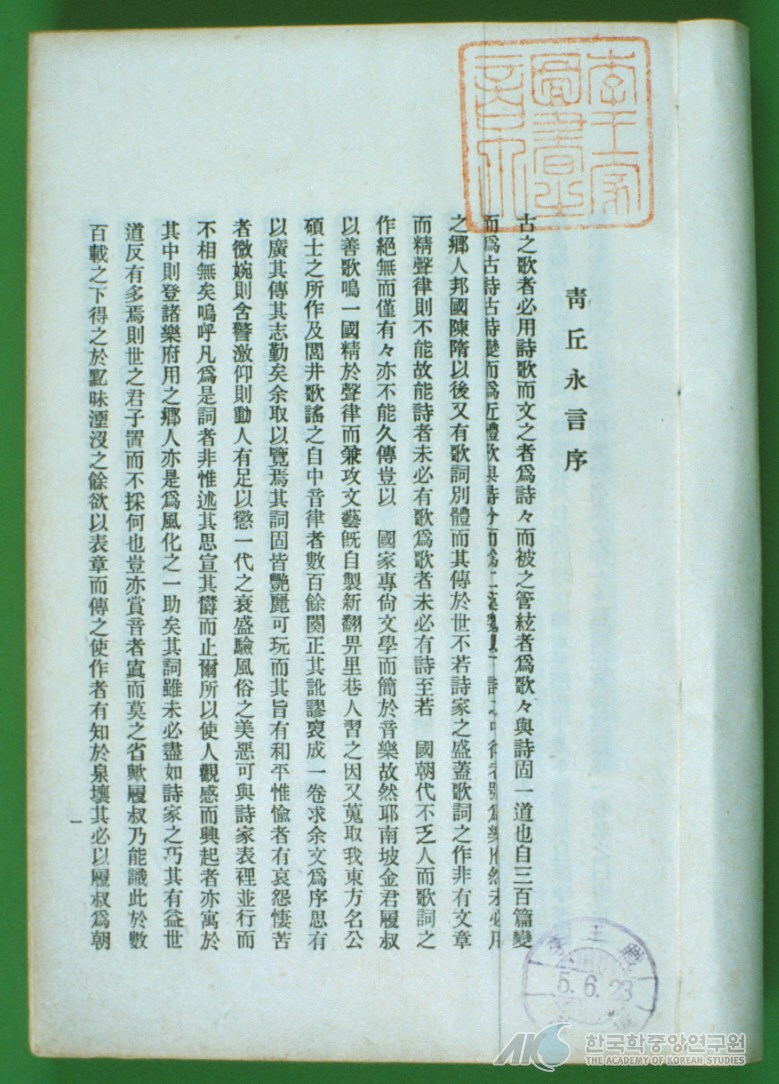 李王家圖書之章
靑丘永言序
古之歌者必用詩歌而文之者爲詩々而被之管絃者爲歌々與詩固一道也自三百篇變
而爲古詩古詩變而爲近體歌與詩分而爲二漢魏 詩之中 者號爲樂府然未必用
之鄕人邦國陳隋以後又有歌詞別體而其傳於世不若詩家之盛蓋歌詞之作非有文章
而精聲律則不能故能詩者未必有歌爲歌者未必有詩至若 國朝代不乏人而歌詞之
作絕無而僅有々亦不能久傳豈以 國家專尙文學而簡於音樂故然耶南坡金君履叔
以善歌鳴一國精於聲律而兼攻文藝旣自製新翻畀里巷人習之因又蒐取我東方名公
碩士之所作及閭井歌謠之自中音律者數百餘闋正其訛謬裒成一卷求余文爲序思有
以廣其傳其志勤矣余取以覽焉其詞固皆艶麗可玩而其旨有和平惟愉者有哀怨悽苦
者微婉則含警激仰則動人有足以懲一代之衰盛驗風俗之美惡可與詩家表裡並行而
不相無矣嗚呼凡爲是詞者非惟述其思宣其鬱而止爾所以使人觀感而興起者亦寓於
其中則登諸樂府用之鄕人亦是爲風化之一助矣其詞雖未必盡如詩家之巧其有益世
道反有多焉則世之君子置而不採何也豈亦賞音者寘而莫之省歟履叔乃能識此於數
百載之下得之於黯昧湮沒之餘欲以表章而傳之使作者有知於泉壤其必以履叔爲朝
一
5.6.23
AKS 한국학중앙연구원
THE ACADEMY OF KOREAN STUDIES